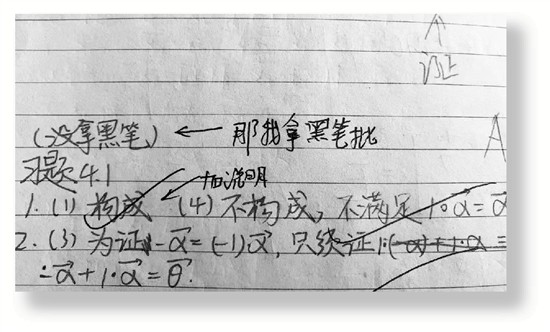 证
(没拿黑笔) ← 那我拿黑笔批
A
习题4.1
加说明
1.(1) 构成 (4) 不构成, 不满足 1·α=α
2.(3) 为证 -α=(-1)α, 只须证
-α+1·α=θ.